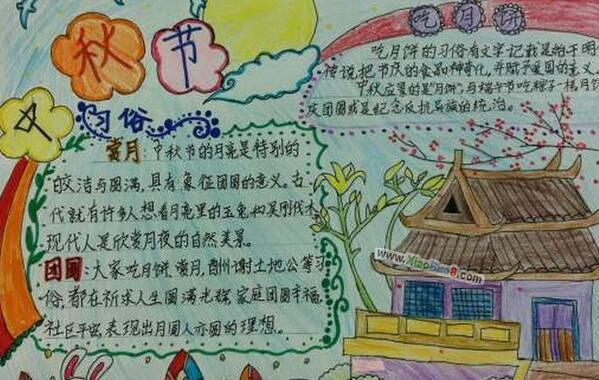 中秋节
习俗
赏月：中秋节的月亮是特别的
皎洁与圆满,具有象征团圆的意义。古
代就有许多人想看月亮里的玉兔和吴刚伐木,
现代人是欣赏月夜的自然美景。
团圆:大家吃月饼、赏月,酬谢土地公等习
俗,都在祈求人生圆满光辉,家庭团圆幸福,
社区平安,表现出月圆人亦圆的理想。
吃月饼
吃月饼的习俗有文字记载是始于明
传说把节庆的食品神奇化,并赋予爱国的意义。
中秋应景的"月饼",与端午节吃粽子一样,月饼
庆团圆就是纪念反抗异族的统治。
www.XiaoBao8.com